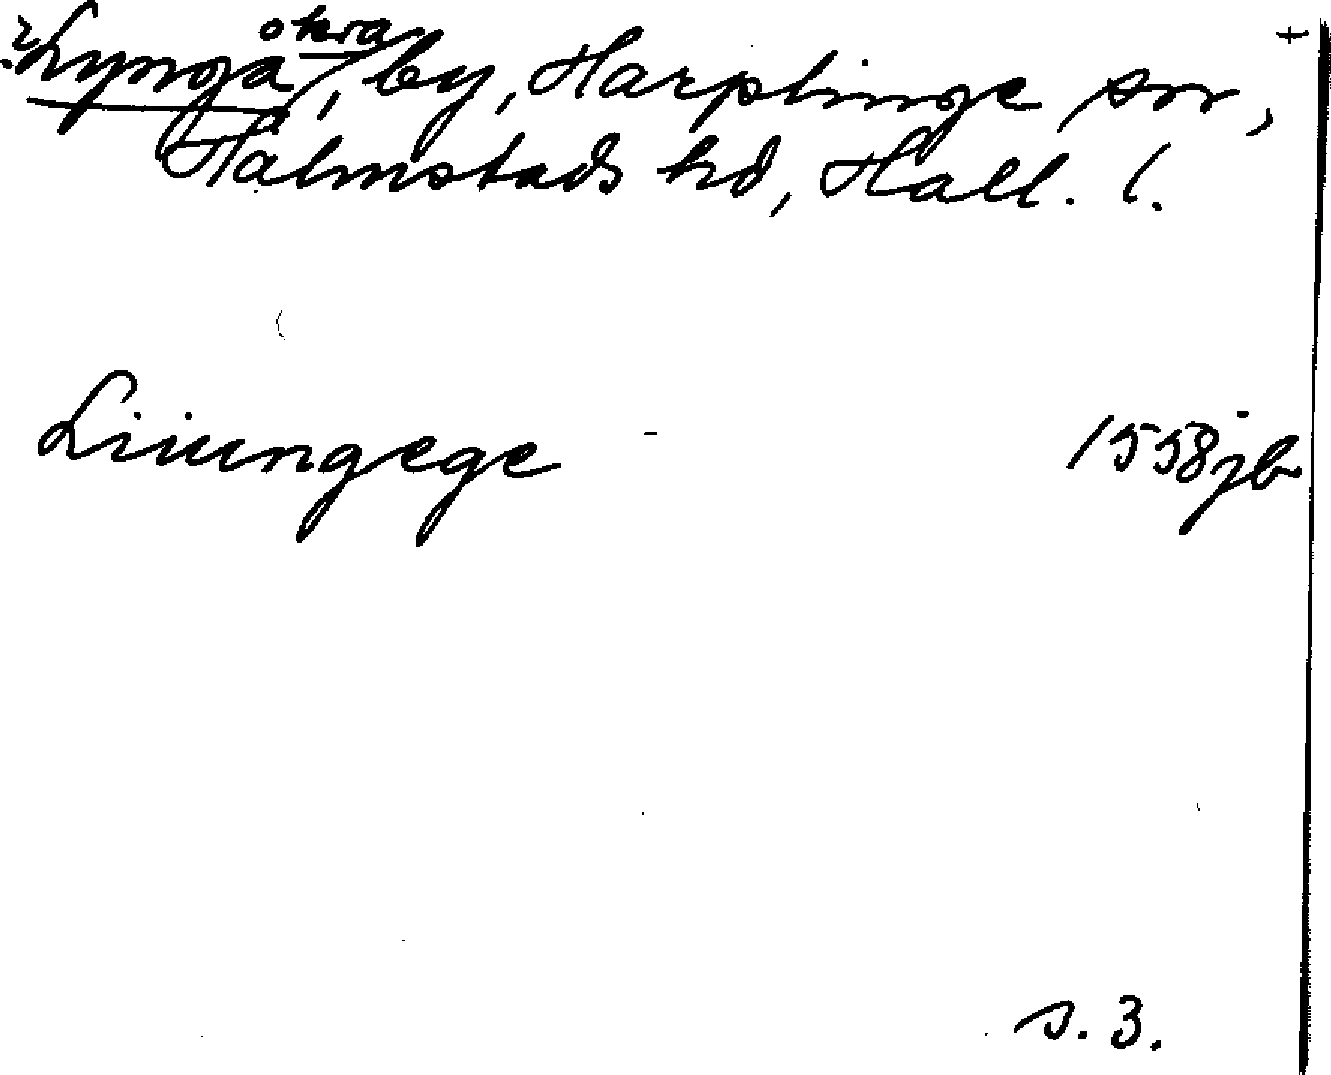 ? Lyngåkra, by, Harplinge sn,
Halmstads hd, Hall. l.
+
Liiungege - 1558 jb
s. 3.